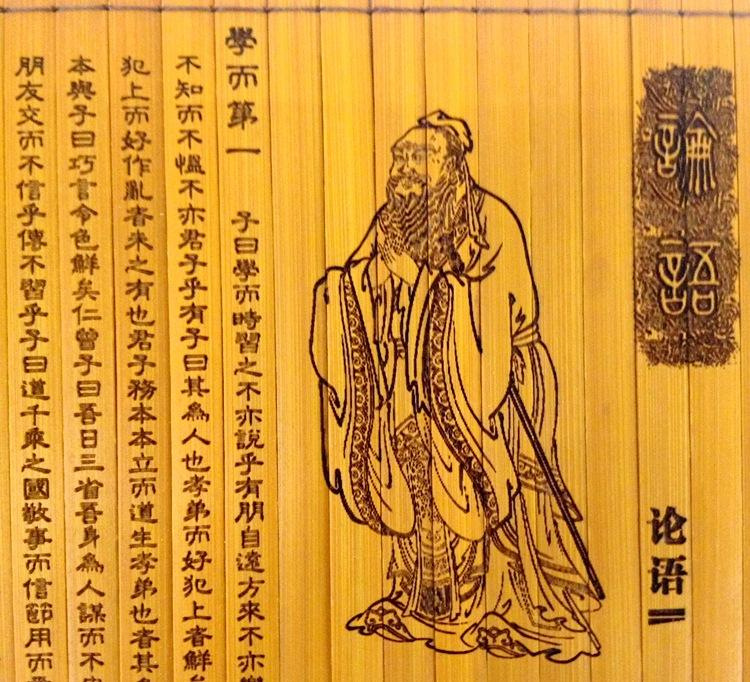 論語
论语
學而第一 子曰學而時習之不亦說乎有朋自遠方來不亦
不知而不慍不亦君子乎有子曰其為人也孝弟而好犯上者鮮
犯上而好作亂者未之有也君子務本本立而道生孝弟也者其
本與子曰巧言令色鮮矣仁曾子曰吾日三省吾身為人謀而不
朋友交而不信乎傳不習乎子曰道千乘之國敬事而信節用而